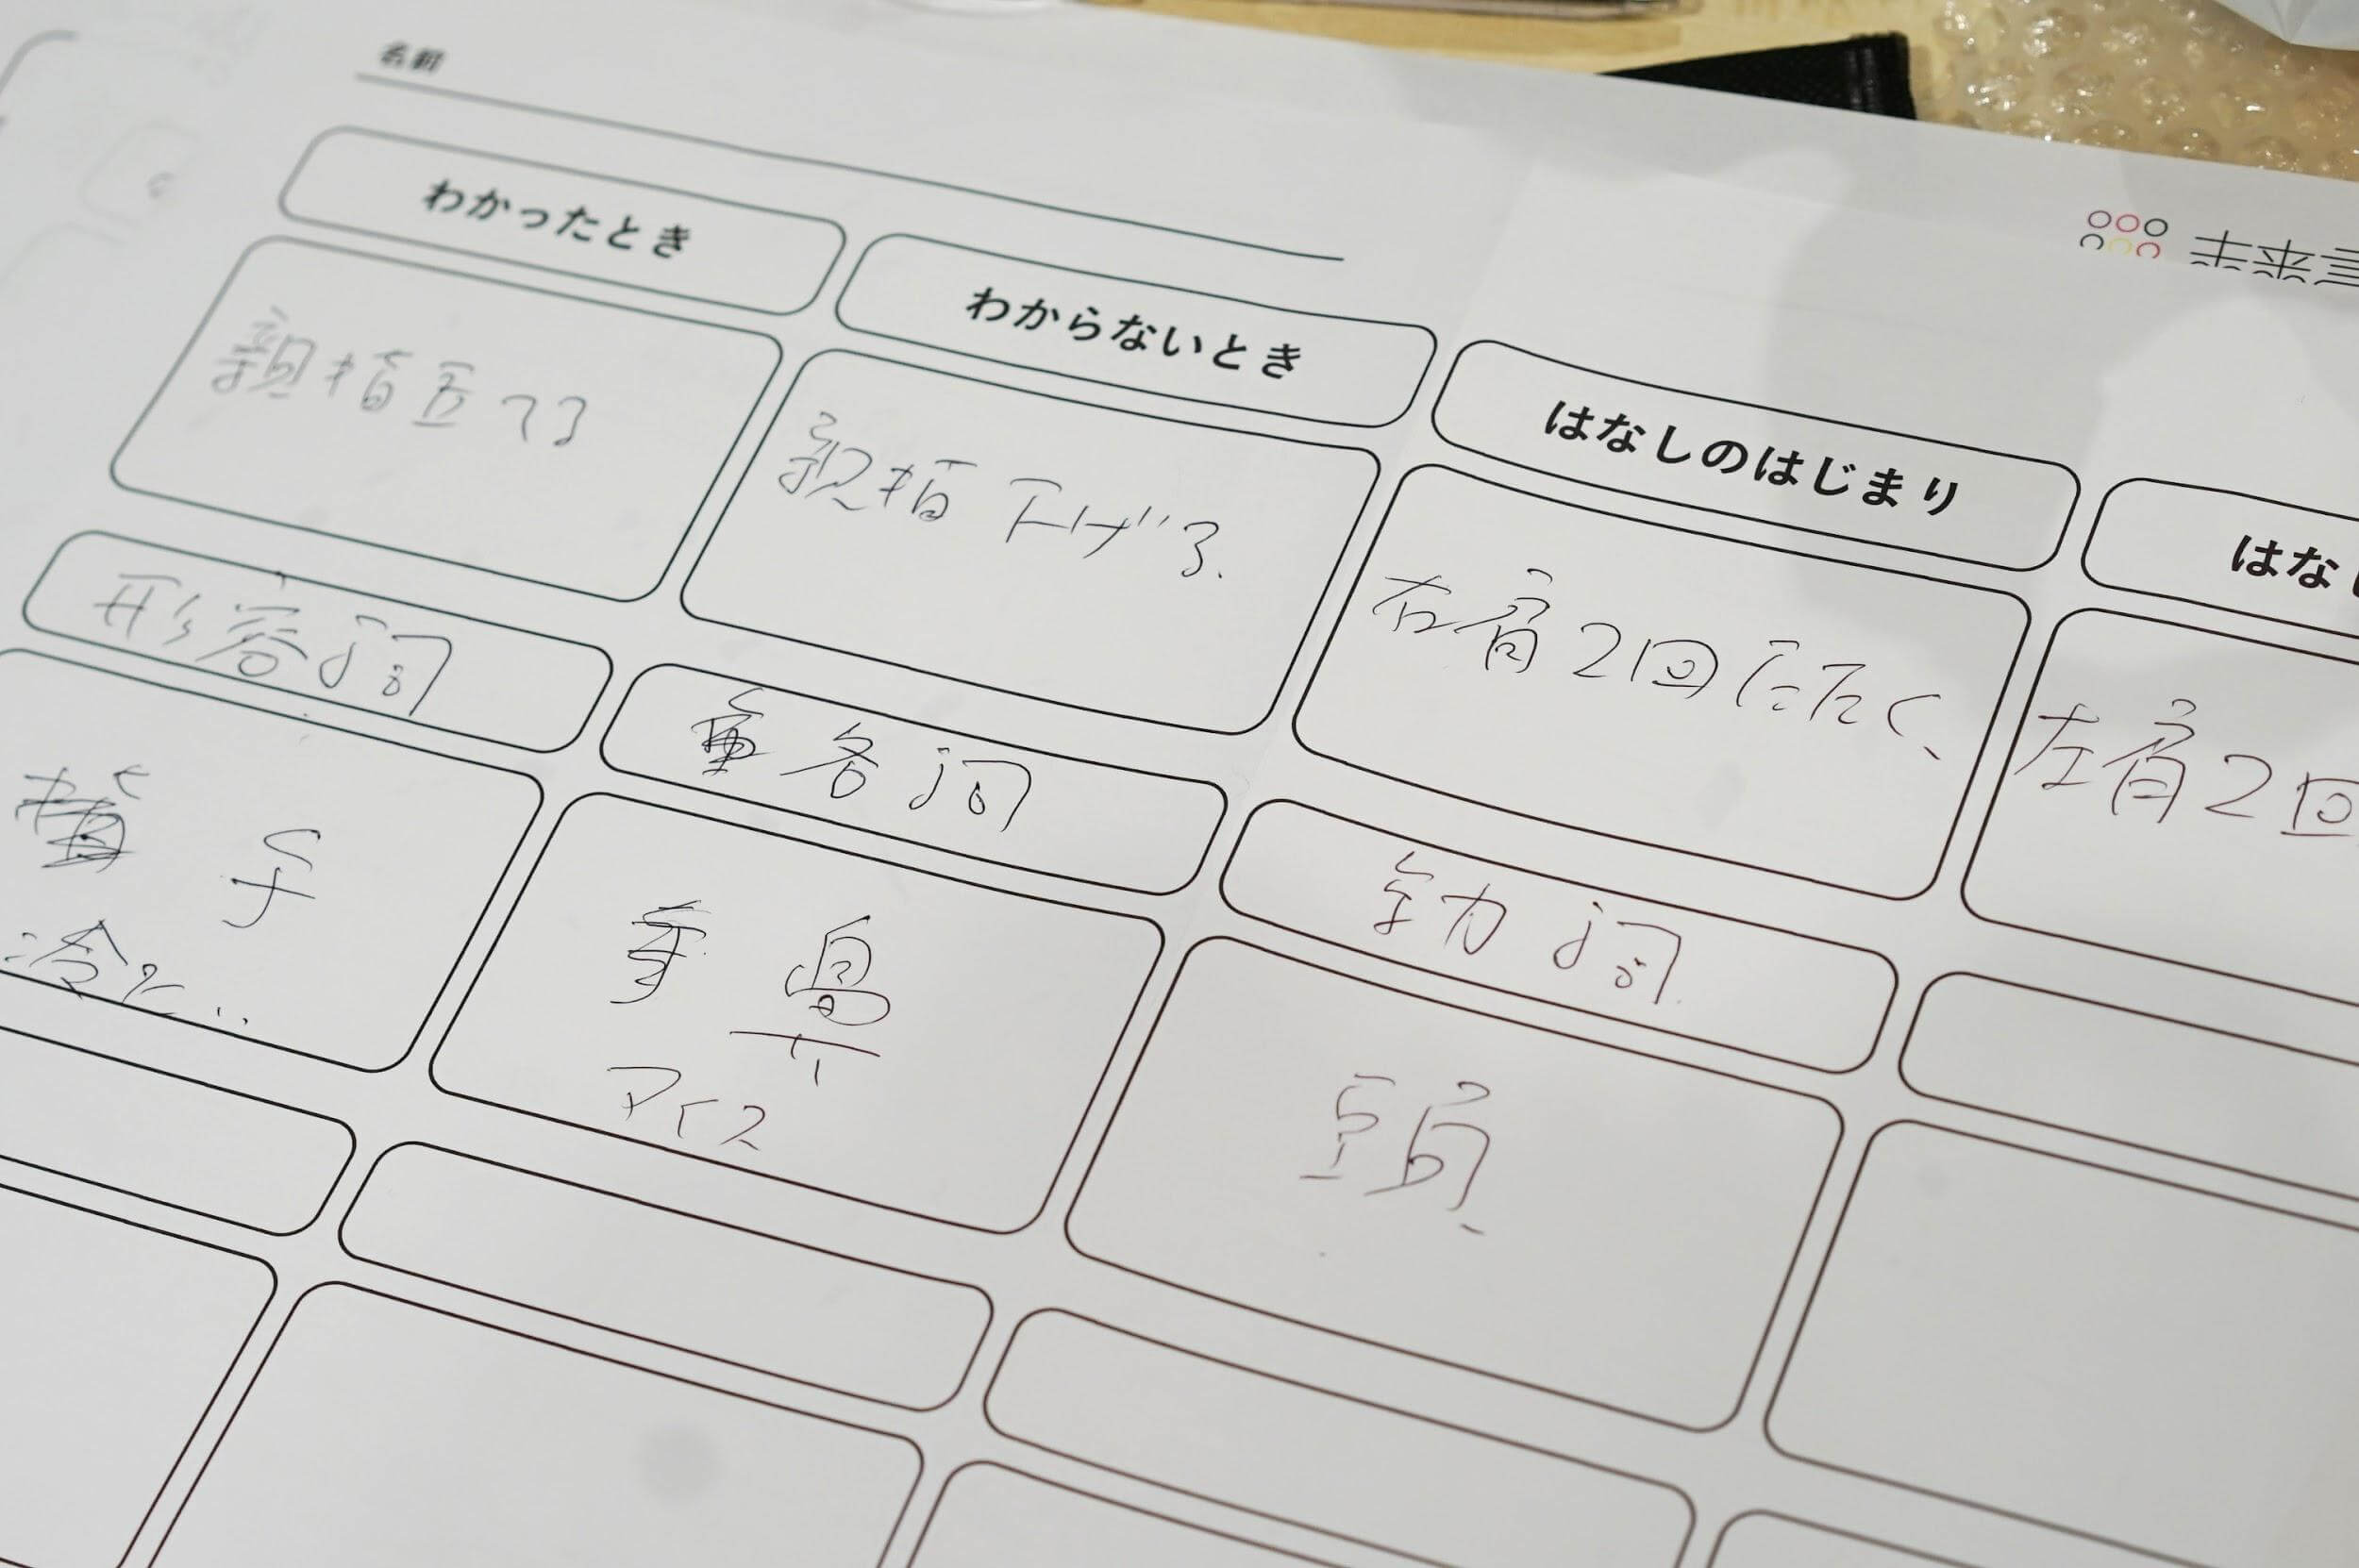 名前
未来
わかったとき
わからないとき
はなしのはじまり
はな
親指立てる
親指下げる
右肩2回たたく
左肩2回
形容詞
名詞
動詞
手
冷た..
鼻
アイス
頭